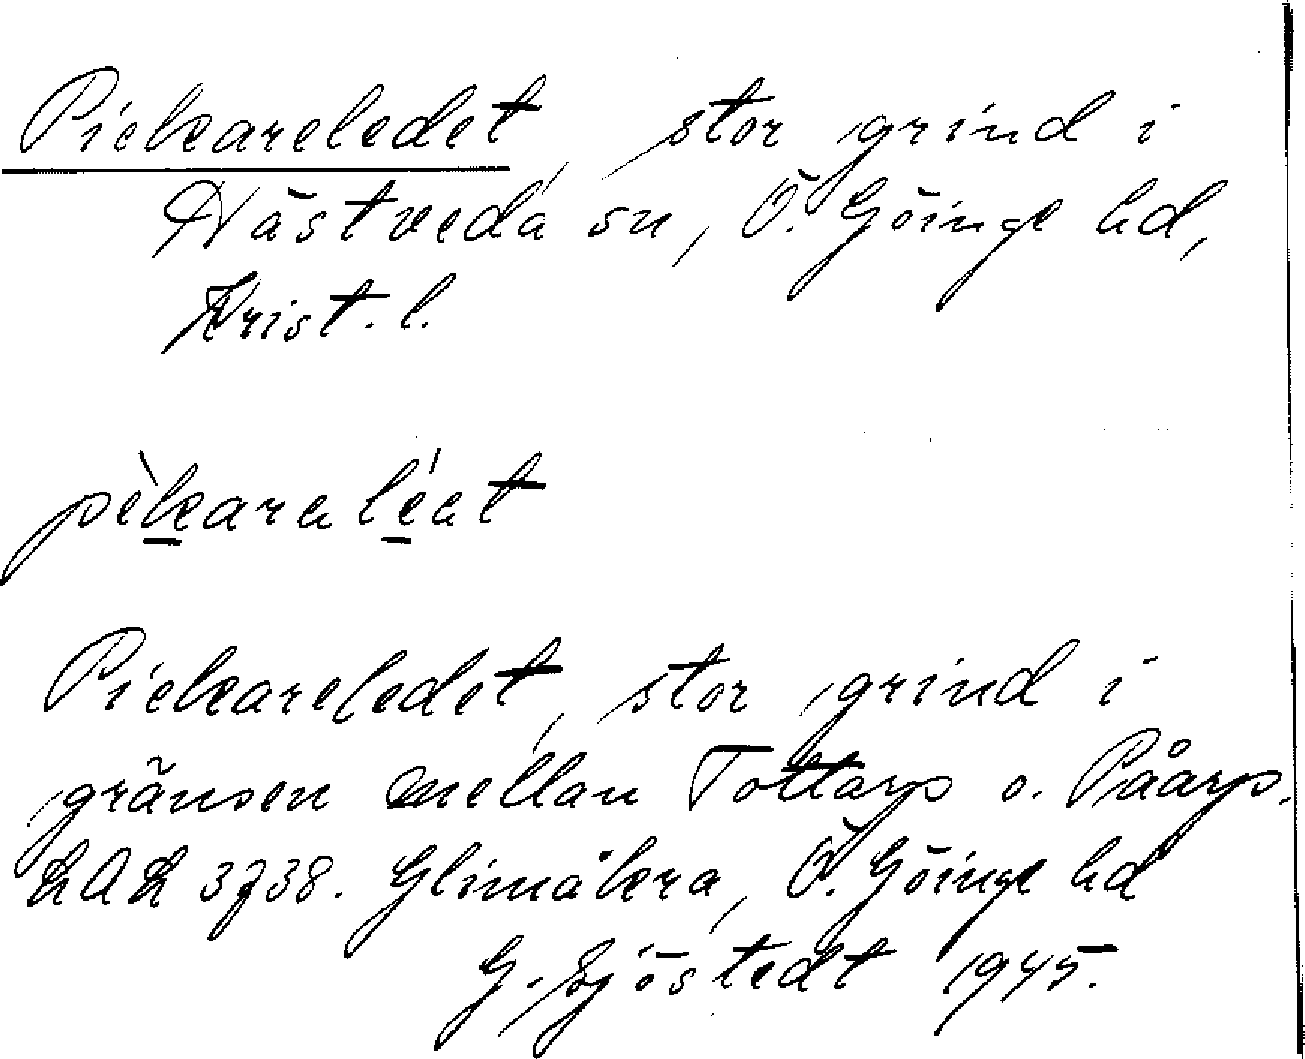 Pickareledet, stor grind i
Nästveda sn, Ö. Göinge hd,
Krist. l.
pèkaraléat
Pickareledet, stor grind i
gränsen mellan Tottarp o. Påarp.
LAL 3738. Glimåkra, Ö. Göinge hd
G. Sjöstedt 1945.